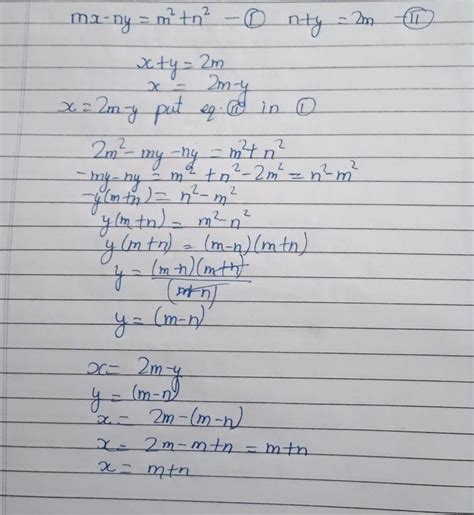 mx-ny = m²+n² - Ⓘ n+y = 2m - Ⓘⓘ
x+y = 2m
x = 2m-y
x = 2m-y put eq. Ⓘⓘ in Ⓘ
2m²-my-ny = m²+n²
-my-ny = m²+n²-2m² = n²-m²
-y(m+n) = n²-m²
y(m+n) = m²-n²
y(m+n) = (m-n)(m+n)
y = (m-n)(m+n)
(m+n)
y = (m-n)
x = 2m-y
y = (m-n)
x = 2m-(m-n)
x = 2m-m+n = m+n
x = m+n